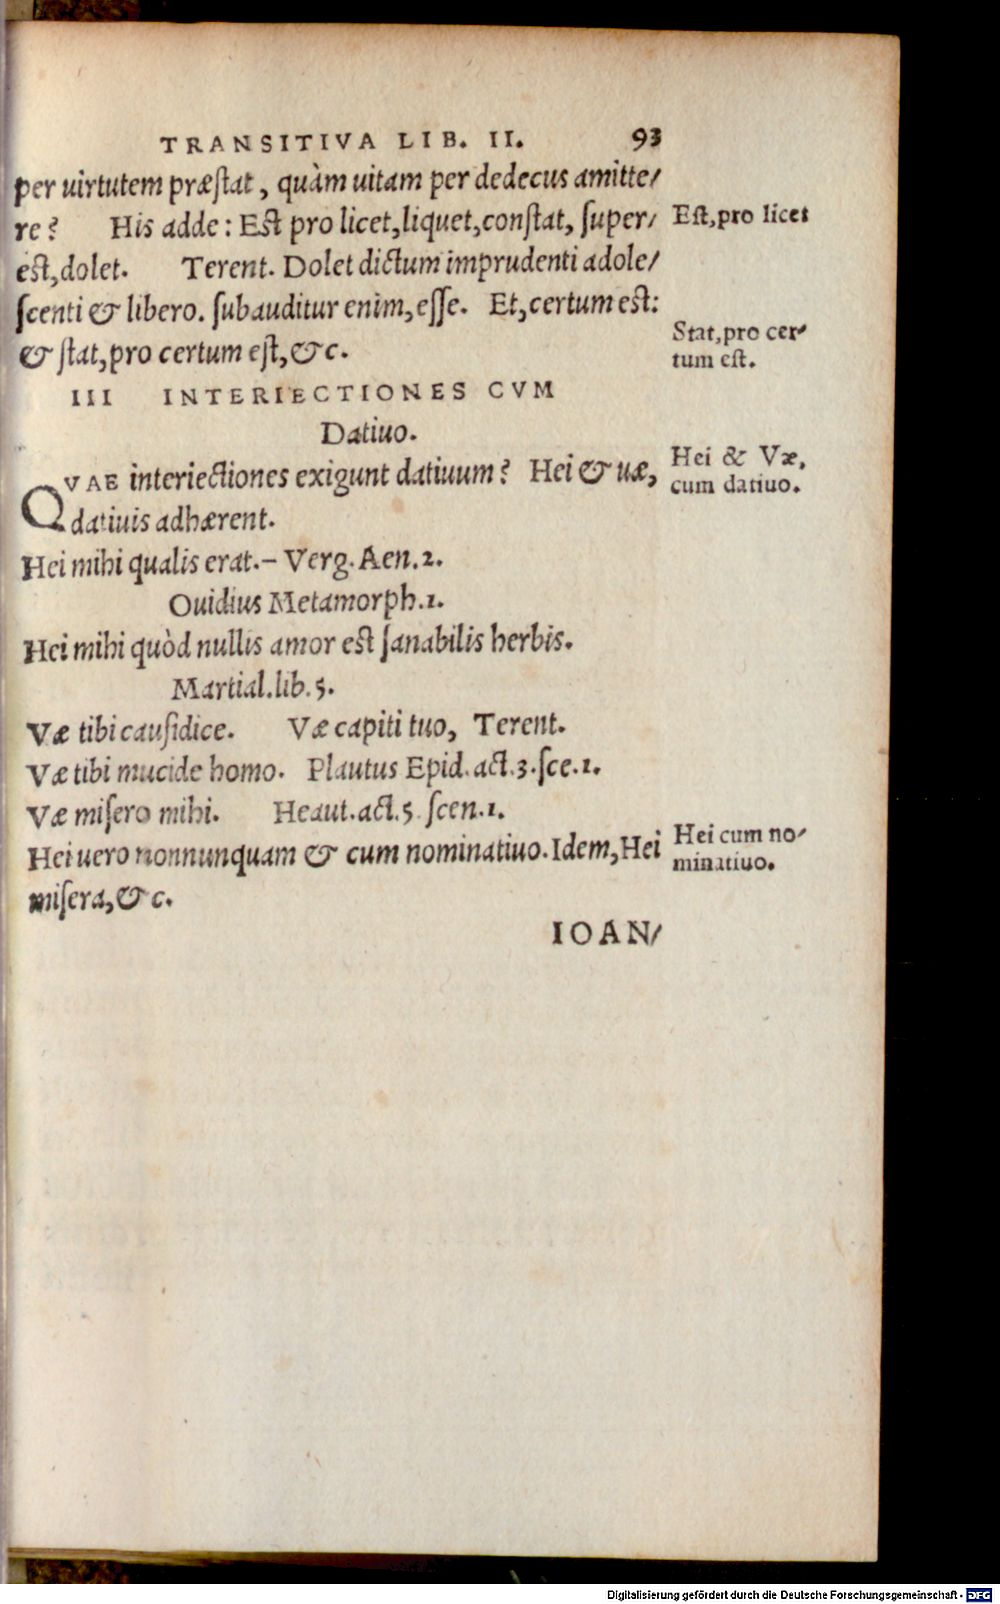 TRANSITIVA LIB. II. 93
per uirtutem præſtat, quàm uitam per dedecus amitte/
re? His adde: Est pro licet, liquet, conſtat, ſuper/
est, dolet. Terent. Dolet dictum imprudenti adole/
ſcenti & libero. ſubauditur enim, eſſe. Et, certum est:
& ſtat, pro certum eſt, &c.
Eſt, pro licet
Stat, pro cer/
tum eſt.
III INTERIECTIONES CVM
Datiuo.
QVAE interiectiones exigunt datiuum? Hei & uæ,
datiuis adhærent.
Hei & Væ,
cum datiuo.
Hei mihi qualis erat.– Verg. Aen. 2.
Ouidius Metamorph. 1.
Hei mihi quòd nullis amor est ſanabilis herbis.
Martial. lib. 5.
Væ tibi cauſidice. Væ capiti tuo, Terent.
Væ tibi mucide homo. Plautus Epid. act. 3. ſce. 1.
Væ miſero mihi. Heaut. act. 5. ſcen. 1.
Hei uero nonnunquam & cum nominatiuo. Idem, Hei
miſera, &c.
Hei cum no/
minatiuo.
IOAN/
Digitalisierung gefördert durch die Deutsche Forschungsgemeinschaft - DFG